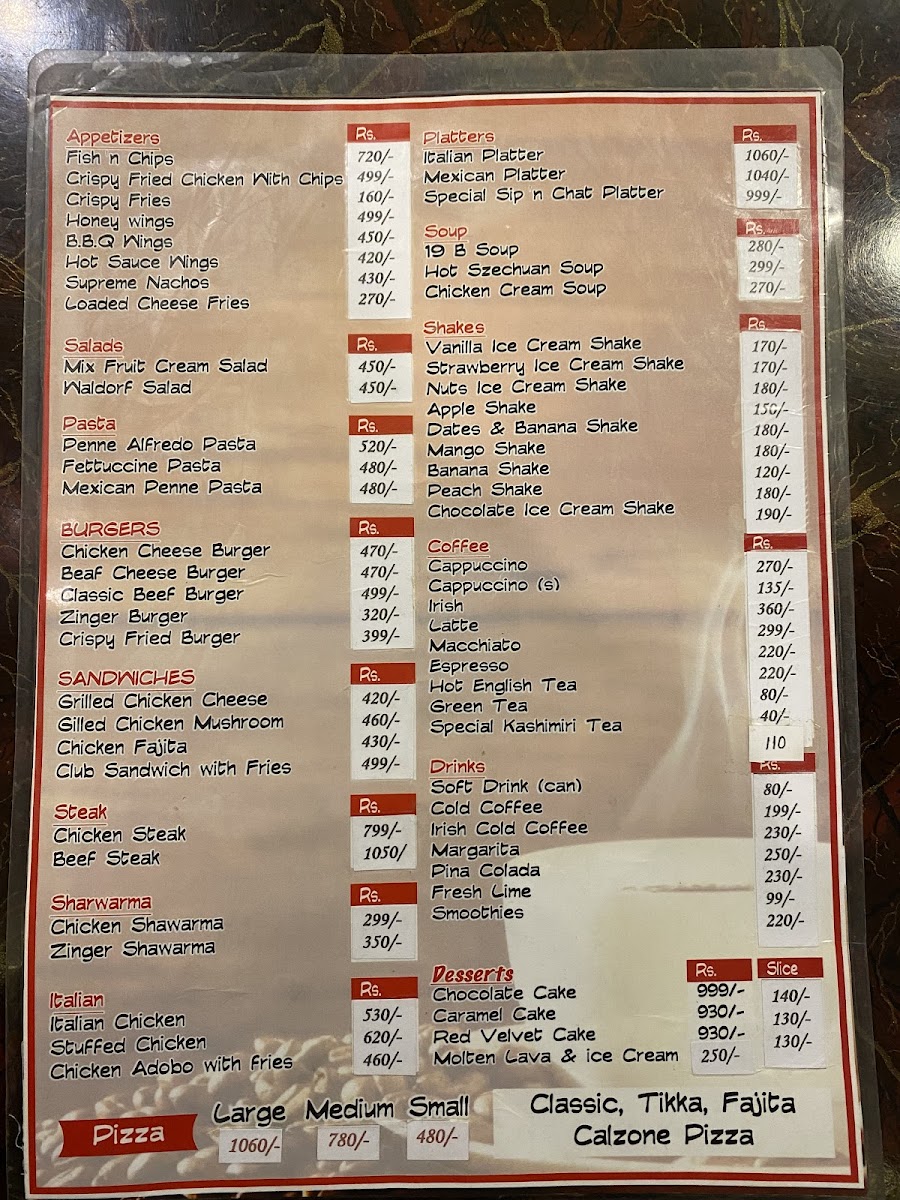 Appetizers Rs.
Fish n Chips 720/-
Crispy Fried Chicken With Chips 499/-
Crispy Fries 160/-
Honey wings 499/-
B.B.Q Wings 450/-
Hot Sauce Wings 420/-
Supreme Nachos 430/-
Loaded Cheese Fries 270/-
Salads Rs.
Mix Fruit Cream Salad 450/-
Waldorf Salad 450/-
Pasta Rs.
Penne Alfredo Pasta 520/-
Fettuccine Pasta 480/-
Mexican Penne Pasta 480/-
BURGERS Rs.
Chicken Cheese Burger 470/-
Beaf Cheese Burger 470/-
Classic Beef Burger 499/-
Zinger Burger 320/-
Crispy Fried Burger 399/-
SANDWICHES Rs.
Grilled Chicken Cheese 420/-
Gilled Chicken Mushroom 460/-
Chicken Fajita 430/-
Club Sandwich with Fries 499/-
Steak Rs.
Chicken Steak 799/-
Beef Steak 1050/
Sharwarma Rs.
Chicken Shawarma 299/-
Zinger Shawarma 350/-
Italian Rs.
Italian Chicken 530/-
Stuffed Chicken 620/-
Chicken Adobo with fries 460/-
Platters Rs.
Italian Platter 1060/-
Mexican Platter 1040/-
Special Sip n Chat Platter 999/-
Soup Rs.
19 B Soup 280/-
Hot Szechuan Soup 299/-
Chicken Cream Soup 270/-
Shakes Rs.
Vanilla Ice Cream Shake 170/-
Strawberry Ice Cream Shake 170/-
Nuts Ice Cream Shake 180/-
Apple Shake 150/-
Dates & Banana Shake 180/-
Mango Shake 180/-
Banana Shake 120/-
Peach Shake 180/-
Chocolate Ice Cream Shake 190/-
Coffee Rs.
Cappuccino 270/-
Cappuccino (s) 135/-
Irish 360/-
Latte 299/-
Macchiato 220/-
Espresso 220/-
Hot English Tea 80/-
Green Tea 40/-
Special Kashimiri Tea 110
Drinks Rs.
Soft Drink (can) 80/-
Cold Coffee 199/-
Irish Cold Coffee 230/-
Margarita 250/-
Pina Colada 230/-
Fresh Lime 99/-
Smoothies 220/-
Desserts Rs. Slice
Chocolate Cake 999/- 140/-
Caramel Cake 930/- 130/-
Red Velvet Cake 930/- 130/-
Molten Lava & ice Cream 250/-
Pizza
Large Medium Small
1060/- 780/- 480/-
Classic, Tikka, Fajita
Calzone Pizza